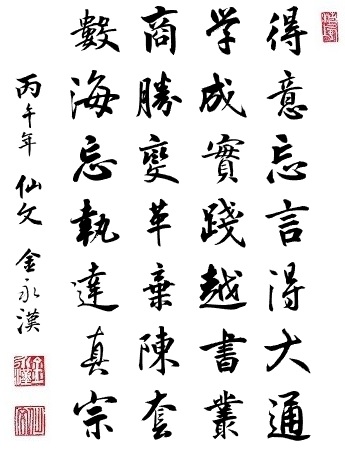 得意忘言得大通
学成實踐越書叢
商勝變革棄陳套
數海忘執達真宗
丙午年 仙文 金永漢